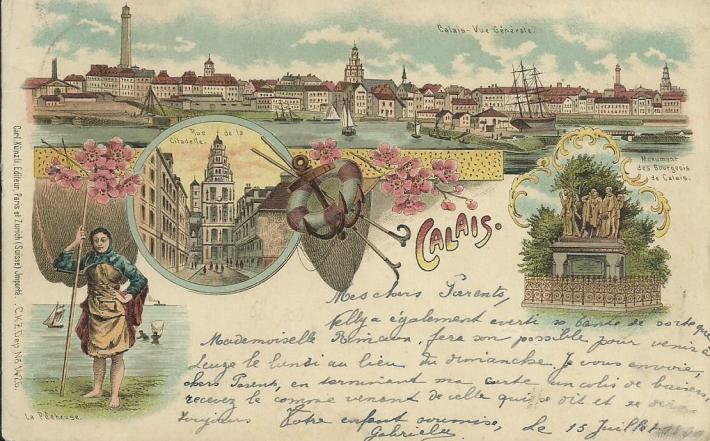 Calais - Vue Générale.
Rue de la
Citadelle.
Monument
des Bourgeois
de Calais.
CALAIS.
La Pêcheuse.
Carl Künzli, Editeur, Paris et Zurich (Suisse) Importé.
Mes chers Parents,
Nelly a également averti sa tante de sorte que
Mademoiselle fera son possible pour venir à
Leuze le lundi au lieu du dimanche. Je vous envoie,
chers Parents, en terminant ma carte un colis de baisers,
recevez le comme venant de celle qui se dit et se dira
toujours Votre enfant soumise,
Gabrielle
Le 15 Juillet